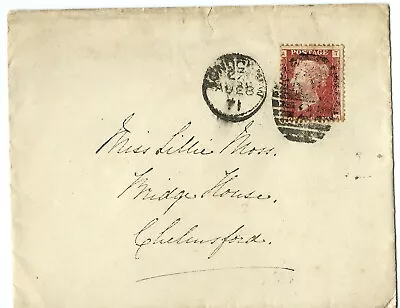 LONDON
28
71
POSTAGE
Miss Lillie Moss.
Bridge House,
Chelmsford.